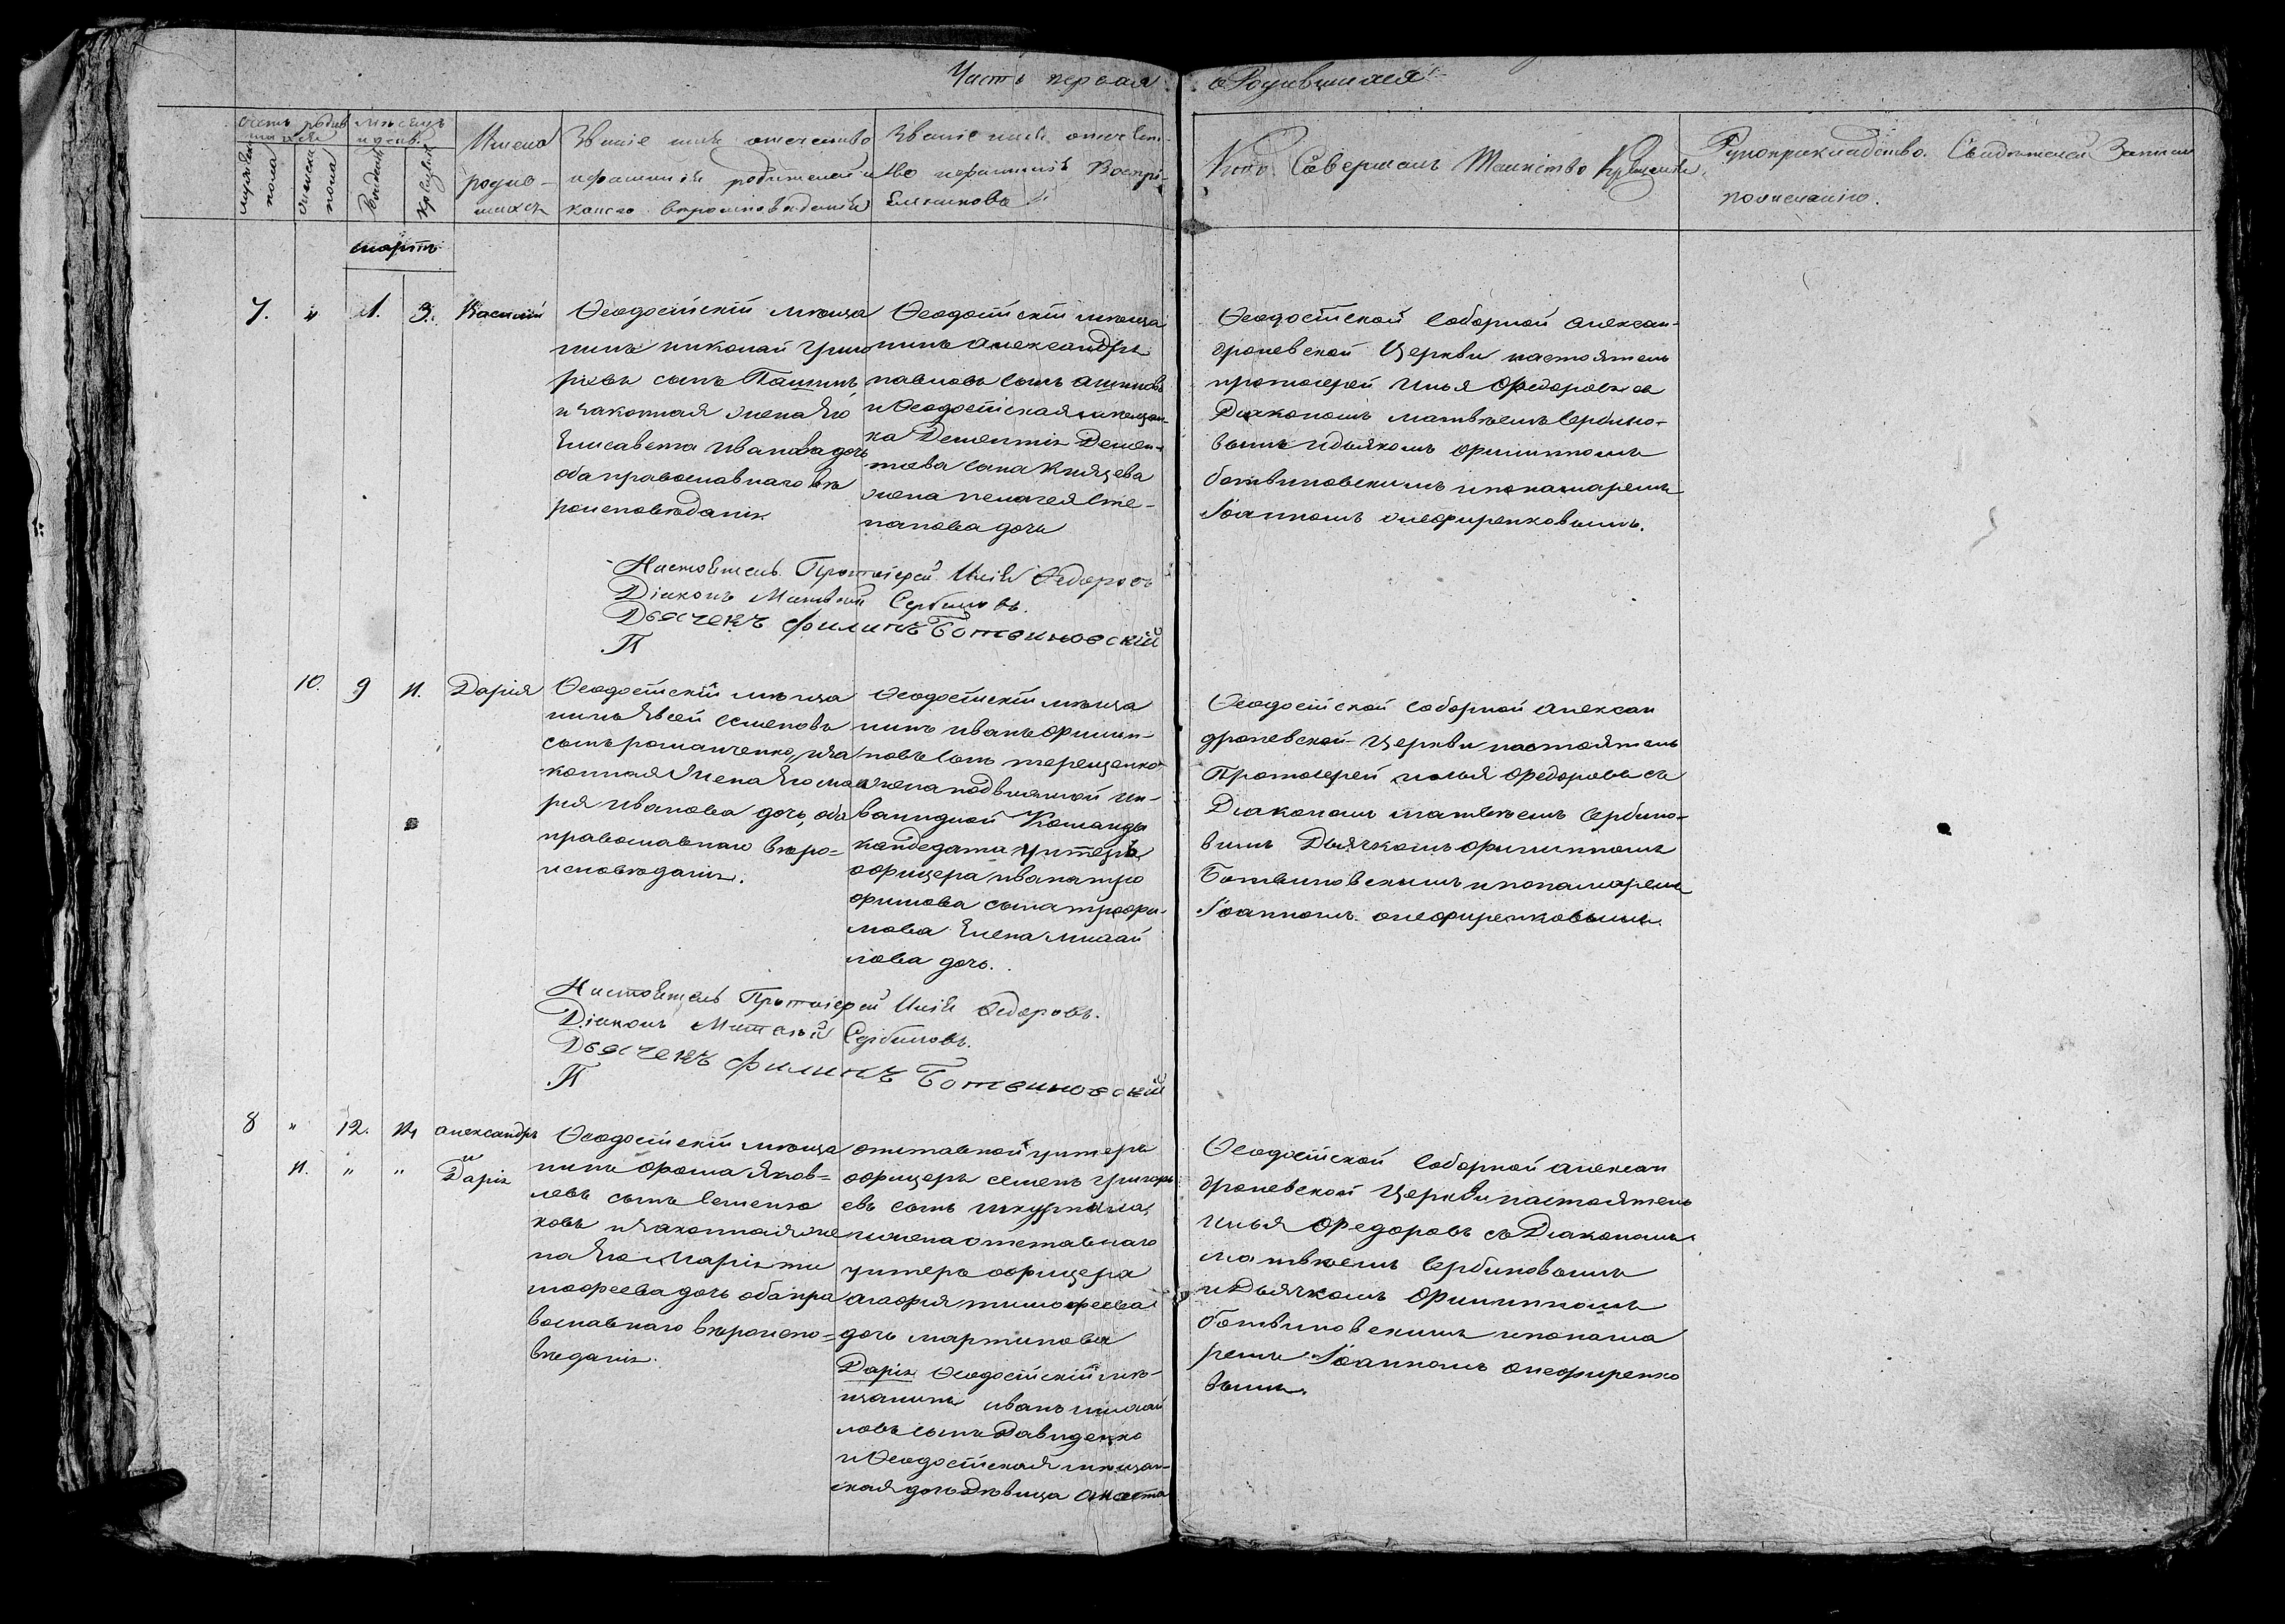 Часть первая о Родившихся
Счетъ родив
шихся
мѣсяцъ
и день.
мужеска
пола
женска
пола
Рожденія
Крещенія
Имена
родив-
шихся
Званіе имя отечество
ифамилія родителей и
какого вѣроисповѣданія
Званіе имя отечест-
во ифамилія Воспрі-
емниковъ
Кто Совершалъ Таинство Крещенія
Рукоприкладство Свидѣтелей Записи
пожеланію.
мартъ
7. " 1. 3. Василій
Ѳеодосійскій мѣща
нинъ николай Григо
рьевъ сынъ Пашинъ
и законная жена Его
Елисавета Иванова дочь
оба православнаго вѣ
роисповѣданія
Ѳеодосійскій мѣща
нинъ александръ
павловъ сынъ
и Ѳеодосійская мѣщан-
ка Дементія Демен-
тьева сына Князева
жена пелагея Сте-
панова дочь
Ѳеодосійской Соборной алексан-
дроневской Церкви настоятель
протоіерей Илья Ѳедоровъ съ
Діакономъ матвѣемъ Сербино-
вымъ идьячкомъ филиппомъ
ботвиновскимъ ипонамаремъ
Іоанномъ онефиренковымъ.
Настоятель Протоіерей Илія Ѳедоровъ
Діаконъ Матвѣй Сербиновъ.
Дьячекъ Филипъ Ботвиновскій
П
10. 9 11. Дарія
Ѳеодосійскій мѣща
нинъ Евсей семеновъ
сынъ романченко, иза
конная жена Его ма
рія Иванова дочь, оба
православнаго вѣро=
исповѣданія.
Ѳеодосійскій мѣща
нинъ иванъ филип-
повъ сынъ терещенко
жена подвижной ин-
валидной Команды
кандедата унтеръ
офицера ивана тро
фимова сына трофи-
мова Елена михай
лова дочь.
Ѳеодосійской соборной алексан
дроневской Церкви настоятель
Протоіерей илья федоровъ съ
Діакономъ матвѣемъ Сербино-
вимъ Дьячкомъ филиппомъ
Ботвиновскимъ ипонамаремъ
Іоанномъ онефиренковымъ.
Настоятель Протоіерей Илія Ѳедоровъ.
Діаконъ Матвѣй Сербиновъ.
Дьячекъ Филипъ Ботвиновскій
П
8 " 12. 14 александръ
и
11. " " Дарія
Ѳеодосійскій мѣща
нинъ фома Яков=
левъ сынъ Семеню
ковъ изаконная же
на Его Марія ти
мофеева дочь оба пра
вославнаго вѣроиспо=
вѣданія.
отставной унтеръ
офицеръ семенъ григорь
евъ сынъ
ижена отставнаго
унтеръ офицера
агафія тимофеева
дочь мартинова
Дарія Ѳеодосійскій мѣ-
щанинъ иванъ михай
ловъ сынъ Давиденко
и Ѳеодосійская мѣщан-
ская дочь Дѣвица анаста
Ѳеодосійской соборной алексан
дроневской Церкви настоятель
Илья Федоровъ съ Діакономъ
матвѣемъ Сербиновымъ
и Дьячкомъ Филиппомъ
ботвиновскимъ ипонама
ремъ Іоанномъ онефиренко
вымъ.